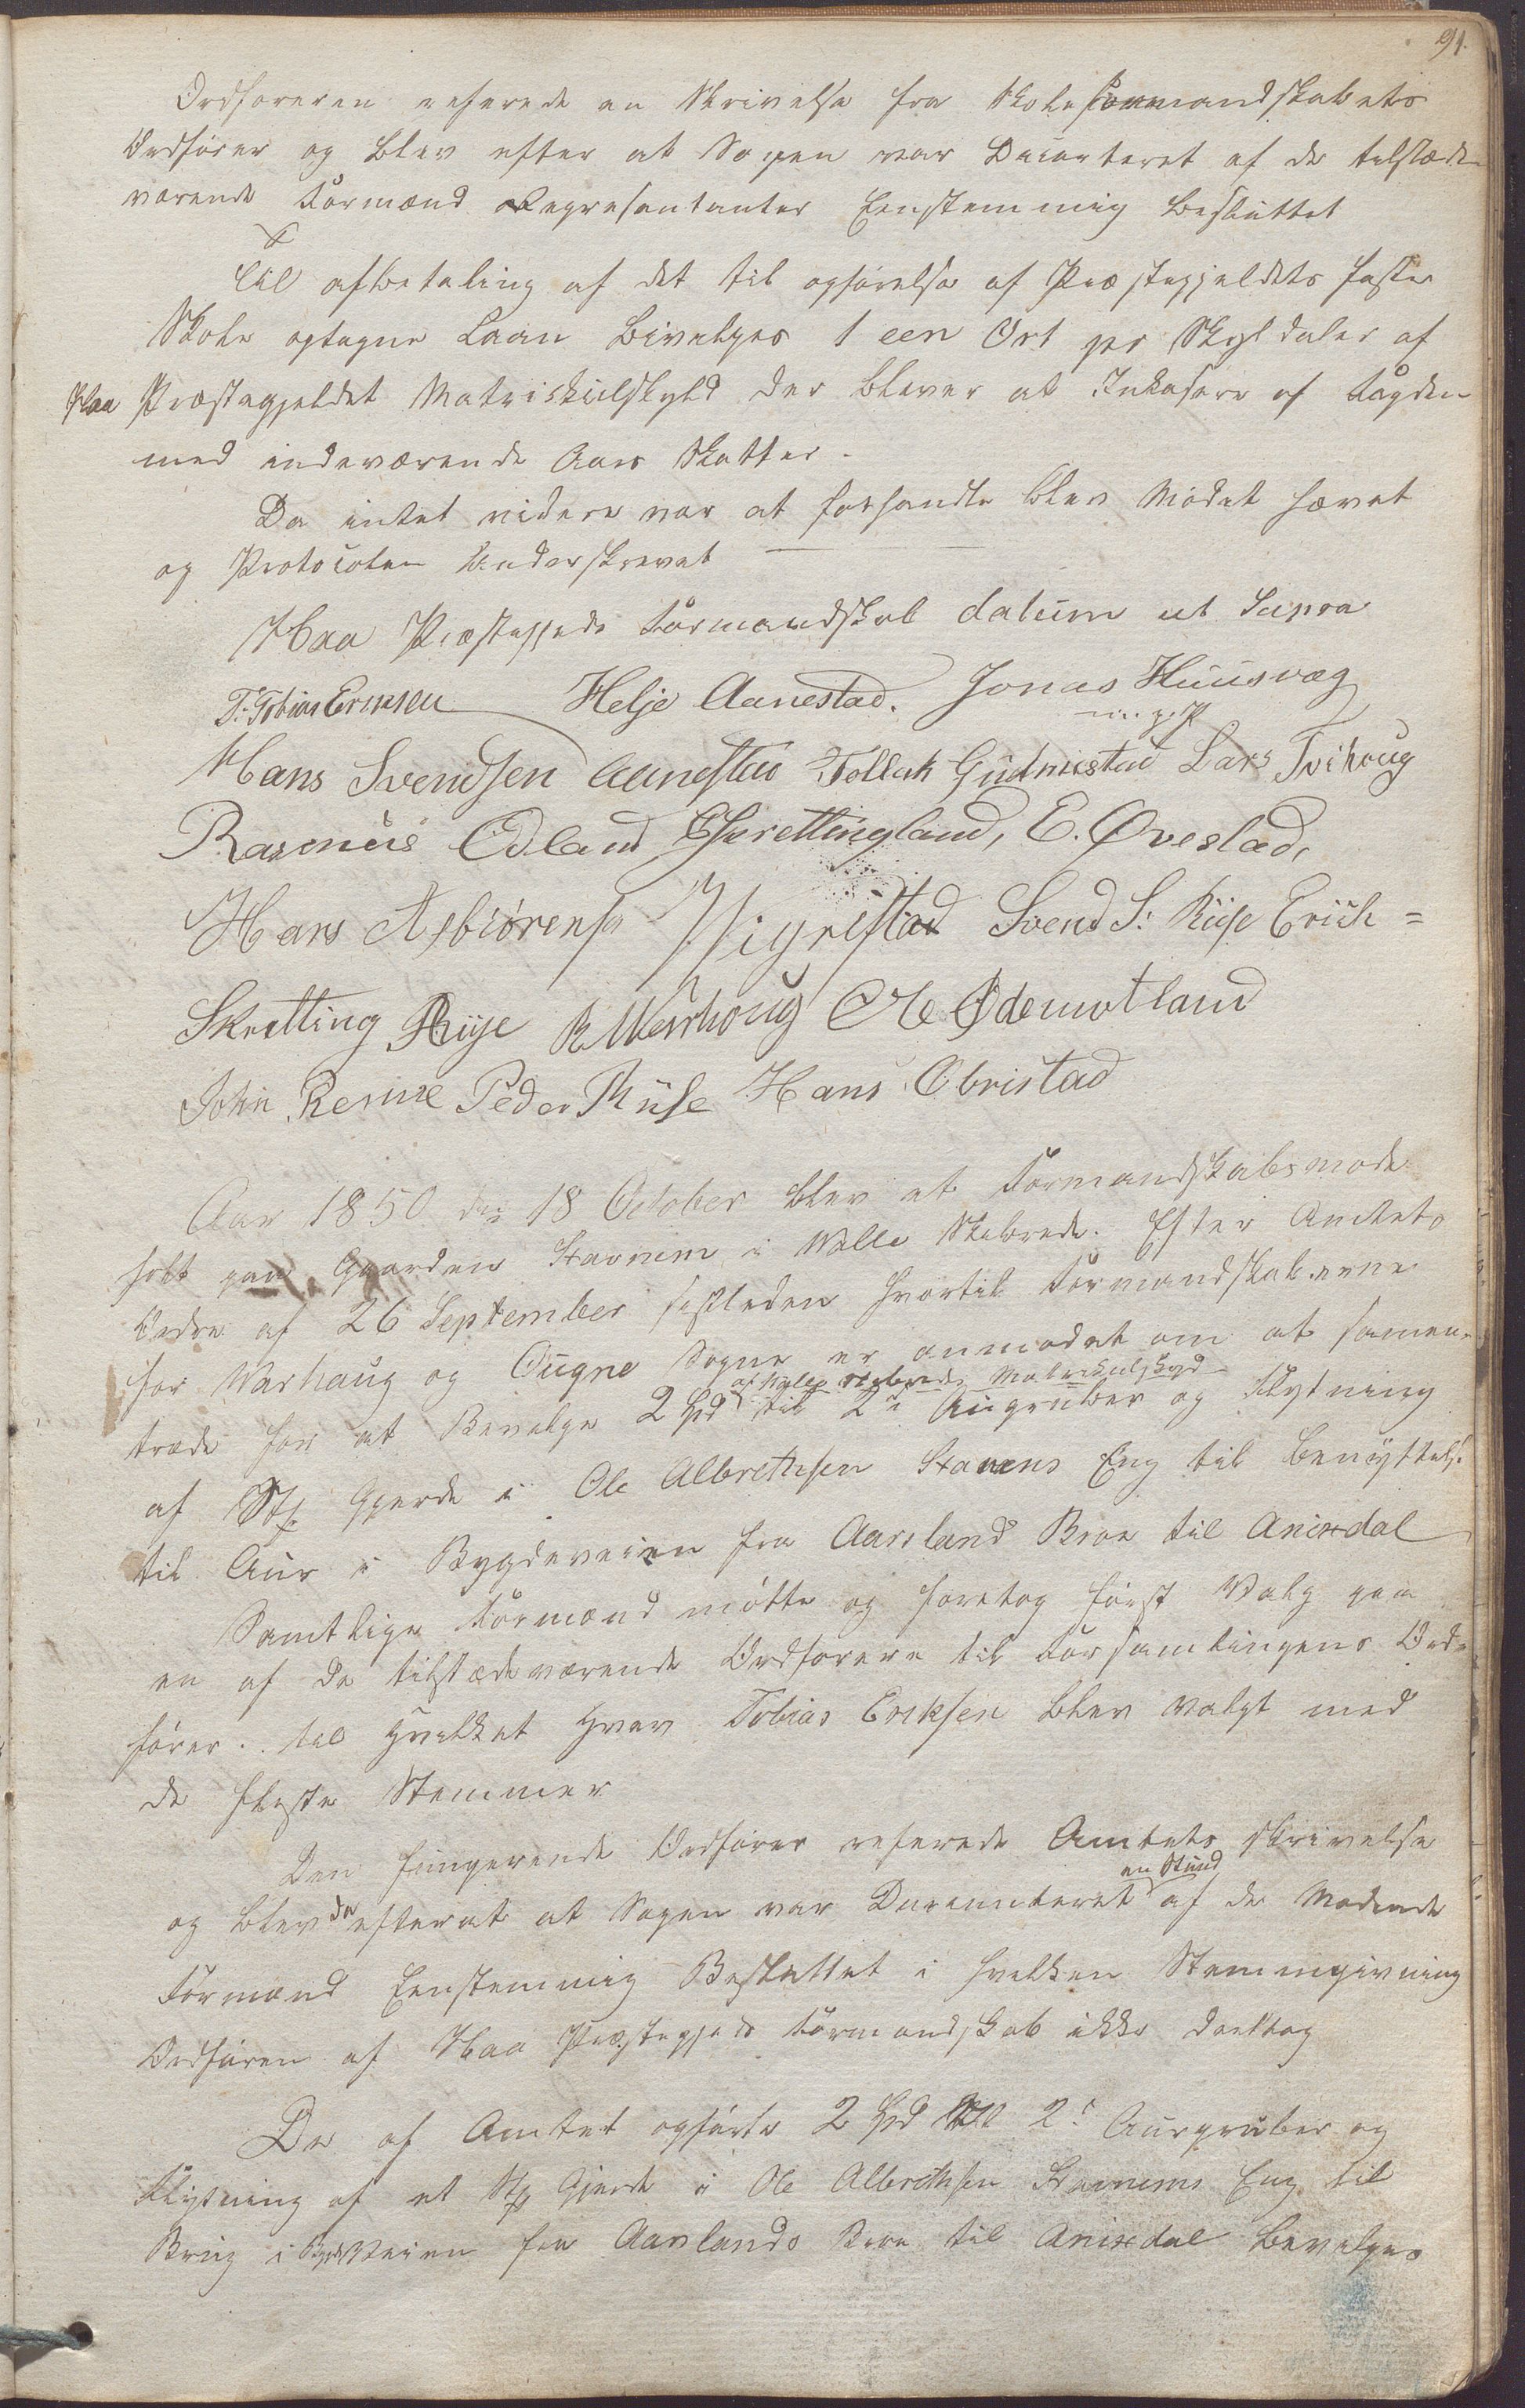 91.
Ordføreren referede en Skrivelse fra Skoleformandskabets
Ordfører og blev efter at Sagen var Deicuteret af de tilstæde
værende Formænd Representanter Eenstemmig besluttet
Til afbetaling af det til opførelse af Præstegjeldets faste
Skole optagne Laan bivelges 1 een Ort pr Skyldaler af
Haa Præstegjeldet Matriskulskyld der bliver at Inkasere af Fogden
med indeværende Aars Skatter.
Da intet videre var at forhandle blev Mødet hævet
og Protocolen Underskrevet
Haa Præstegjelds Formandskab datum ut Supra
T. Tobias Eriksen Helje Aanestad. Jonas Huusvæg
m. p. P
Hans Svendsen Aanestad Tollak Gudmestad Lars Tvihoug
Rasmus Ødland E Skrettingland, E. Øvestad,
Hans Asbiørens Vigrestad Svend S. Riise Erick =
Skretting Riise R Warhoug Ole Ødemotland
John Reime Peder Riise Hans Obristad
Aar 1850 den 18 October blev et Formandskabsmøde
holt paa Gaarden Stavnem i Walle Skibrede. Efter Amtets
Ordre af 26 September sistleden hvortil Formandskaberne
for Warhaug og Ougne Sogne er anmodet om at samen-
træde for at Bevilge 2 Spd til 2de Augruber og Flytning
af Walle Skibreds Matrikulskyld
af Stk Gjerde i Ole Albrethsen Stavnems Eng til benyttelse
til Aur i Bygdeveien fra Aarsland Broe til Anixdal
Samtlige Formænd møtte og foretog først Valg paa
en af de tilstædeværende Ordførere til Forsamlingens Ord-
fører. til hvilket hverv Tobias Eriksen blev valgt med
de fleste Stemmer
Den fungerende Ordfører referede Amtets skrivelse
en Stund
og blev da efterat at Sagen var Deicuteret af de Mødende
Formænd Eenstemmig Besluttet i hvilken Stemmgivning
Ordføren af Haa Præstegjelds Formandskab ikke deeltog
De af Amtet opførte 2 Spd til 2de Aurgruber og
Flytning af et Stk Gjerde i Ole Albrethsen Stavnems Eng til
Brug i BygdeVeien fra Aarslands Broe til Anixdal bevilges